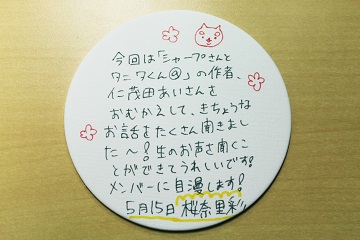 今回は「シャープさんと
タニタくん@」の作者、
仁茂田あいさんを
おむかえして、きちょうな
お話をたくさん聞きまし
た〜!生のお声を聞くこ
とができてうれしいです!
メンバーに自漫します!
5月15日 桜奈里彩